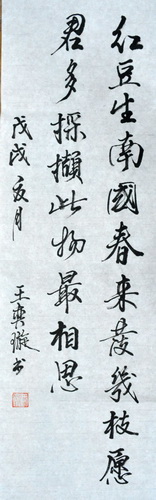 红豆生南國春来發幾枝愿
君多採擷此物最相思
戊戌夏月
王奕璇书